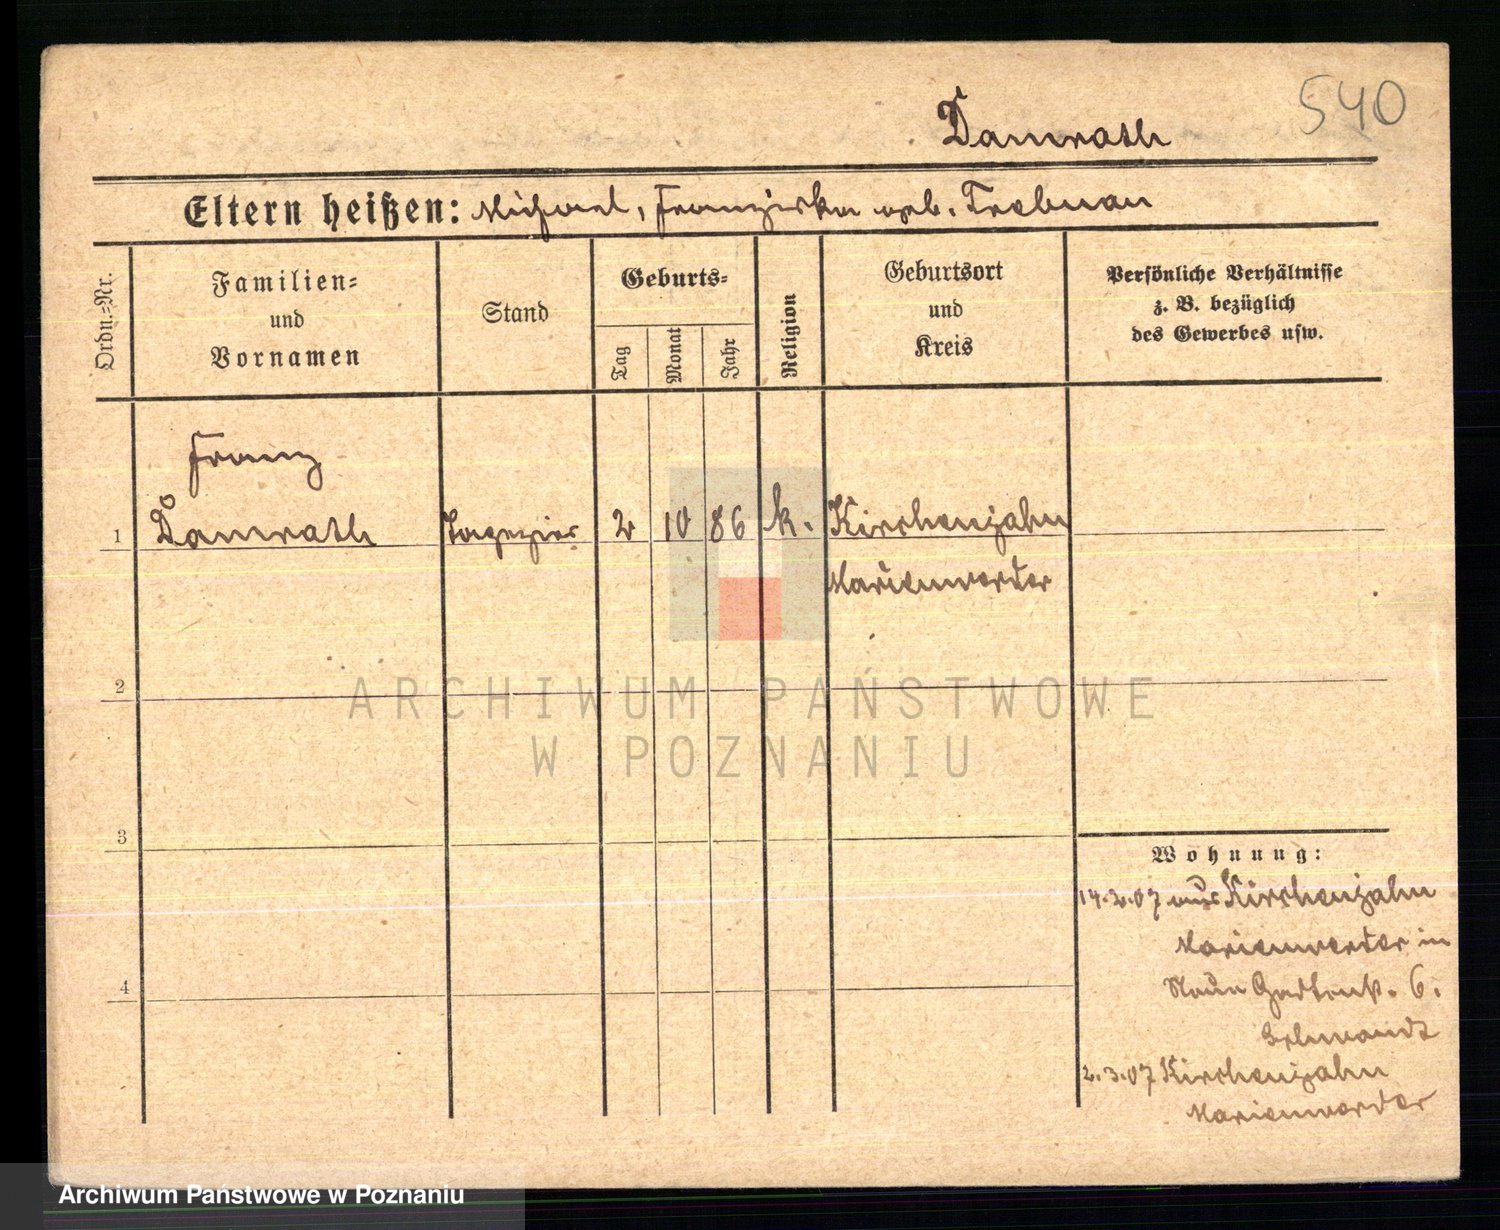 540
Damrath
Eltern heißen: Michael, Franziska geb.
Ordn.-Nr.
Familien-
und
Vornamen
Stand
Geburts-
Tag
Monat
Jahr
Religion
Geburtsort
und
Kreis
Persönliche Verhältnisse
z. B. bezüglich
des Gewerbes usw.
Franz
1 Damrath 2 10 86 k. Kirchenjahn
Marienwerder
2
ARCHIWUM PAŃSTWOWE
W POZNANIU
3
Wohnung:
14.2.07 aus Kirchenjahn
Marienwerder in
Neue 6.
4
2.3.07 Kirchenjahn
Marienwerder
Archiwum Państwowe w Poznaniu